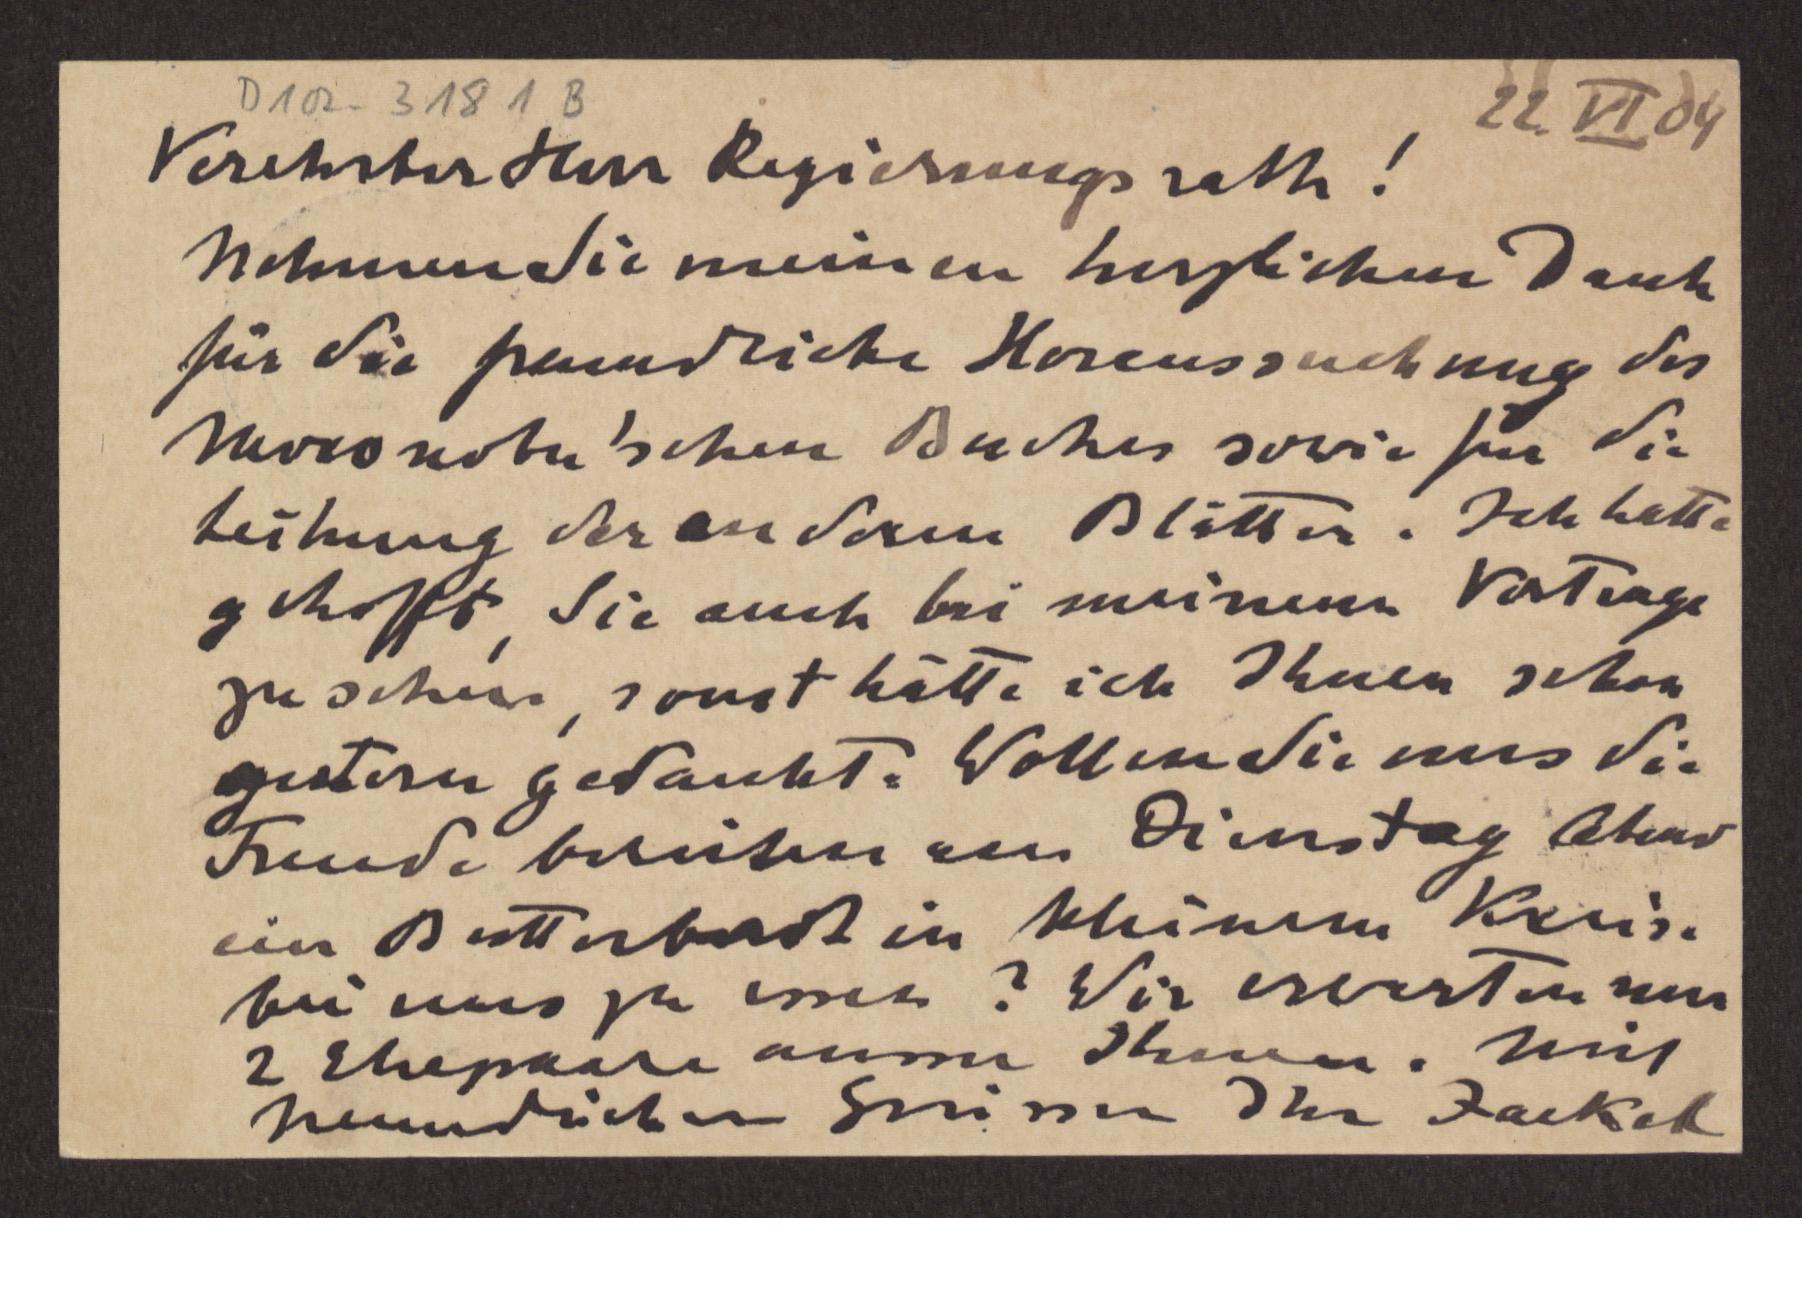 D 102- 3181 B
22. VI 04
Verehrter Herr Regierungsrath!
Nehmen Sie meinen herzlichen Dank
für die freundliche Heraussuchung des
Moronobu'schen Buches sowie für die
Leihung der anderen Blätter. Ich hatte
gehofft, Sie auch bei meinem Vortrage
zu sehen, sonst hätte ich Ihnen schon
gestern gedankt. Wollen Sie uns die
Freude bereiten am Dienstag Abend
ein Butterbrot in kleinem Kreise
bei uns zu essen? Wir erwarten nur
2 Ehepaare ausser Ihnen. Mit
freundlichen Grüssen Ihr Jaekel